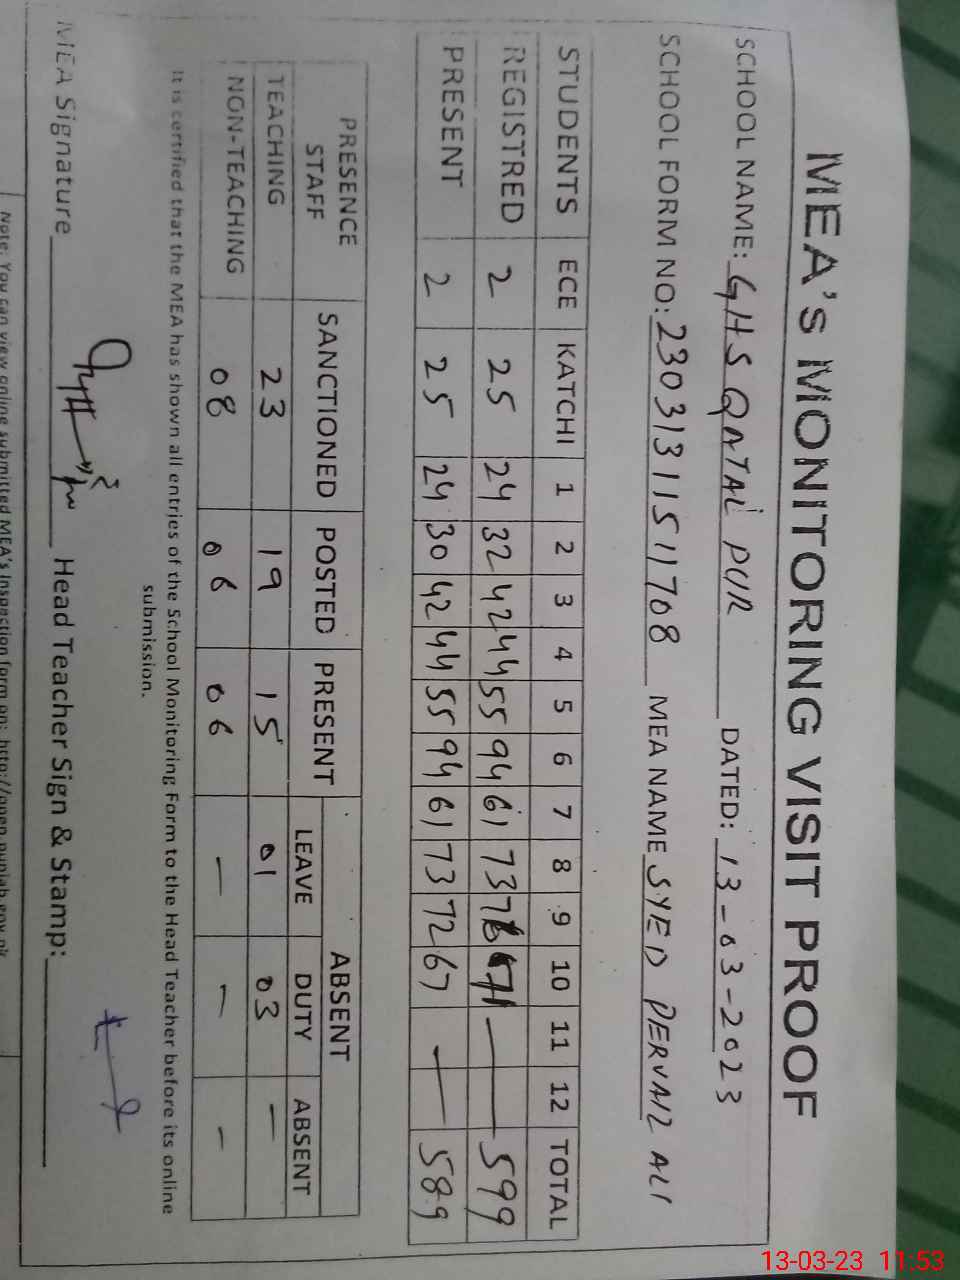 MEA's MONITORING VISIT PROOF
SCHOOL NAME: GHS QATAL PUR DATED: 13-03-2023
SCHOOL FORM NO: 23031311511708 MEA NAME SYED PERVAIZ ALI
STUDENTS ECE KATCHI 1 2 3 4 5 6 7 8 9 10 11 12 TOTAL
REGISTRED 2 25 24 32 42 44 55 94 61 73 76 71 — 599
PRESENT 2 25 24 30 42 44 55 94 61 73 72 67 — 589
PRESENCE STAFF SANCTIONED POSTED PRESENT ABSENT
LEAVE DUTY ABSENT
TEACHING 23 19 15 01 03 —
NON-TEACHING 08 06 06 — — —
It is certified that the MEA has shown all entries of the School Monitoring Form to the Head Teacher before its online
submission.
MEA Signature Head Teacher Sign & Stamp:
Note: You can view online submitted MEA's Inspection form on: http://open.punjab.gov.pk
13-03-23 11:53